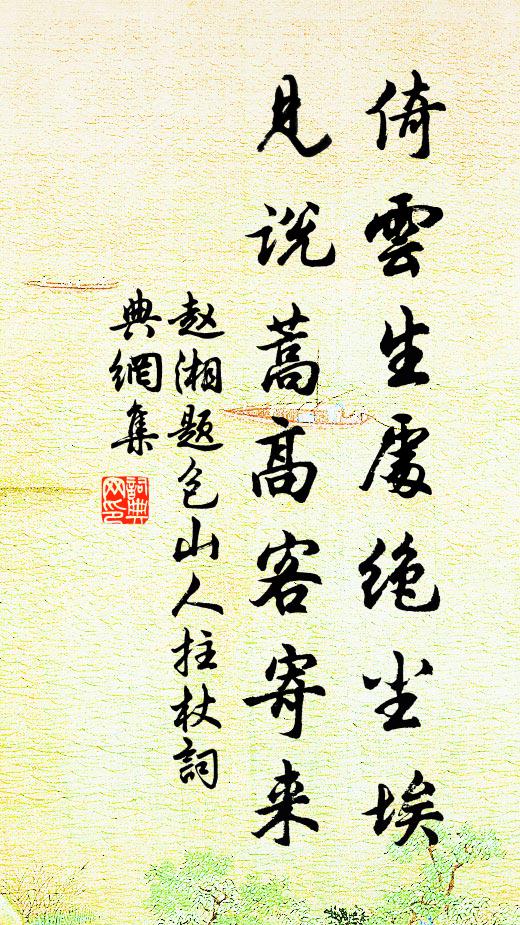 倚雲生處绝尘埃
見説蒿高客寄来
赵湘题包山人拄杖詞
典網集
詞典網印